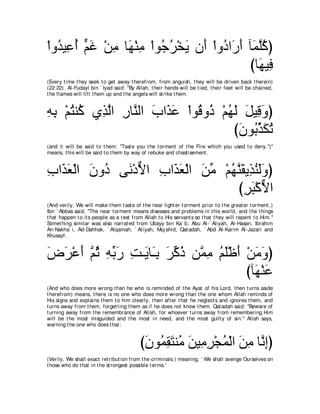 كُلَّمَآ أَرَادُواْ أَن يَخْرُجُواْ مِنْهَا مِنْ غَمٍّ أُعِيدُواْ
فِيهَا)
(Every time they seek to get away therefrom, from anguish, they will be driven back therein)
(22:22). Al-Fudayl bin `Iyad said: "By Allah, their hands will be tied, their feet will be chained,
the flames will lift them up and the angels will strike them.
(وَقِيلَ لَهُمْ ذُوقُواْ عَذَابَ النَّارِ الَّذِي كُنتُمْ بِهِ
تُكَذِّبُونَ)
(and it will be said to them: "Taste you the torment of the Fire which you used to deny.")"
means, this will be said to them by way of rebuke and chastisement.
(وَلَنُذِيقَنَّهُمْ مِّنَ الْعَذَابِ الاٌّدْنَى دُونَ الْعَذَابِ
الاٌّكْبَرِ)
(And verily, We will make them taste of the near lighter torment prior to the greater torment,)
Ibn `Abbas said, "The near torment means diseases and problems in this world, and the things
that happen to its people as a test from Allah to His servants so that they will repent to Him."
Something similar was also narrated from Ubayy bin Ka`b, Abu Al-`Aliyah, Al-Hasan, Ibrahim
An-Nakha`i, Ad-Dahhak, `Alqamah, `Atiyah, Mujahid, Qatadah, `Abd Al-Karim Al-Jazari and
Khusayf.
(وَمَنْ أَظْلَمُ مِمَّن ذُكِّرَ بِـَايَـتِ رَبِّهِ ثُمَّ أَعْرَضَ
عَنْهَآ)
(And who does more wrong than he who is reminded of the Ayat of his Lord, then turns aside
therefrom) means, there is no one who does more wrong than the one whom Allah reminds of
His signs and explains them to him clearly, then after that he neglects and ignores them, and
turns away from them, forgetting them as if he does not know them. Qatadah said: "Beware of
turning away from the remembrance of Allah, for whoever turns away from remembering Him
will be the most misguided and the most in need, and the most guilty of sin." Allah says,
warning the one who does that:
(إِنَّا مِنَ الْمُجْرِمِينَ مُنتَقِمُونَ)
(Verily, We shall exact retribution from the criminals.) meaning, `We shall avenge Ourselves on
those who do that in the strongest possible terms.'